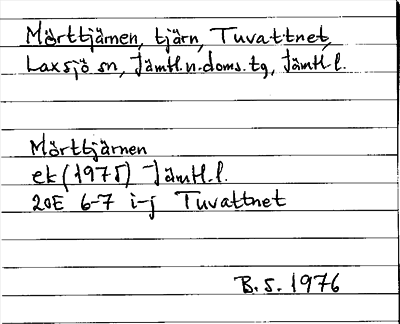 Mörttjärnen, tjärn, Tuvattnet,
Laxsjö sn, Jämtl.n.doms.tg, Jämtl.l.
Mörttjärnen
ek (1975) Jämtl.l.
20E 6-7 i-j Tuvattnet
B.S. 1976